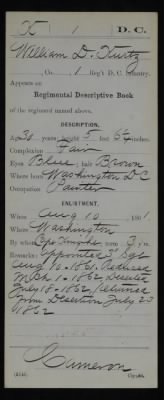 K | 1 | D. C.
William D. Kurtz
Co. 1 Reg't D. C. Infantry.
Appears on
Regimental Descriptive Book
of the regiment named above.
DESCRIPTION.
Age 30 years; height 5 feet 6½ inches.
Complexion Fair
Eyes Blue; hair Brown
Where born Washington D C
Occupation Painter
ENLISTMENT.
When Aug 10, 1861
Where Washington
By whom term 3 y'rs.
Remarks: Appointed 3 Sgt
Aug 10 - 1861. Reduced
Mch 1 - 1862 Deserted
July 18 - 1862 Returned
from Desertion July 23
1862
Cameron
Copyist.